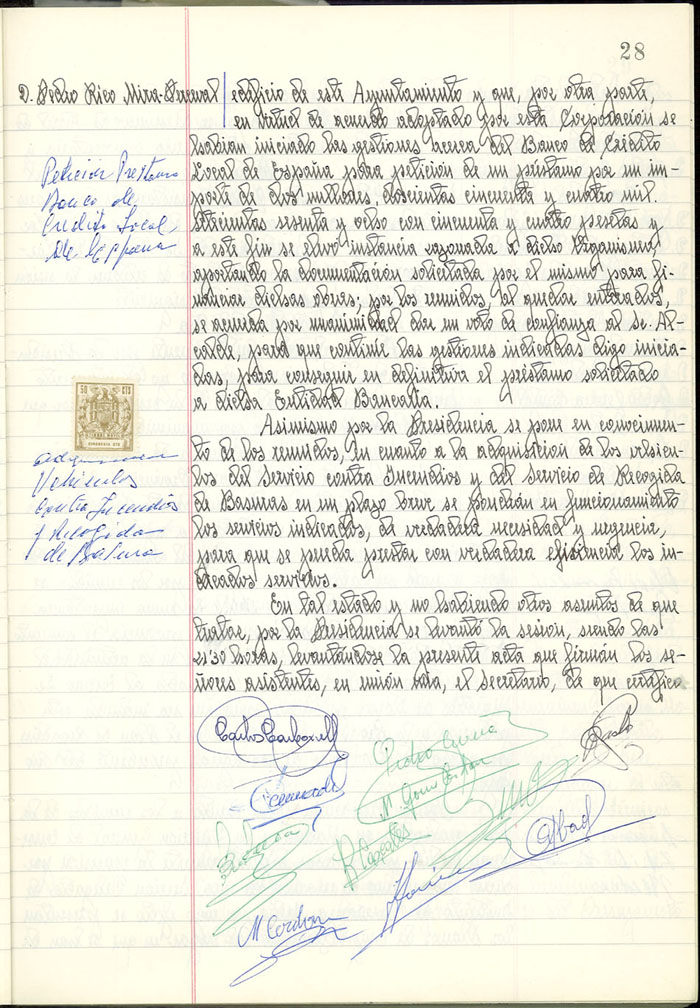 28
D. Pedro Rico Mira-Perceval edificio de este Ayuntamiento y que, por otra parte,
en virtud de acuerdo adoptado por esta Corporación se
habian iniciado las gestiones acerca del Banco de Crédito
Local de España para petición de un préstamo por un im-
porte de dos millones, doscientas cincuenta y cuatro mil
setecientas sesenta y ocho con cincuenta y cuatro pesetas y
a este fin se elevó instancia razonada a dicho Organismo,
aportando la documentación solicitada por el mismo para fi-
nanciar dichas obras; por los reunidos, al quedar enterados,
se acuerda por unanimidad dar un voto de confianza al Sr. Al-
calde, para que continue las gestiones indicadas digo inicia-
das, para conseguir en definitiva el préstamo solicitado
a dicha Entidad Bancaria.
Asimismo por la Presidencia se pone en conocimien-
to de los reunidos, en cuanto a la adquisición de los vehicu-
los del Servicio contra Incendios y del Servicio de Recogida
de Basuras en un plazo breve se pondrán en funcionamiento
los servicios indicados, de verdadera necesidad y urgencia,
para que se pueda prestar con verdadera eficiencia los in-
dicados servicios.
En tal estado y no habiendo otros asuntos de que
tratar, por la Presidencia se levantó la sesión, siendo las
21'30 horas, levantándose la presente acta que firmán los se-
ñores asistentes, en unión mia, el Secretario, de que certifico
Petición Prestamo
Banco de
Credito Local
de España
50 CTS
Vehiculos
contra Incendios
y Recogida
de Basura
Carlos Carbonell
Pedro
M. Gomez
R. Cazalles
Abad
M Cerdan